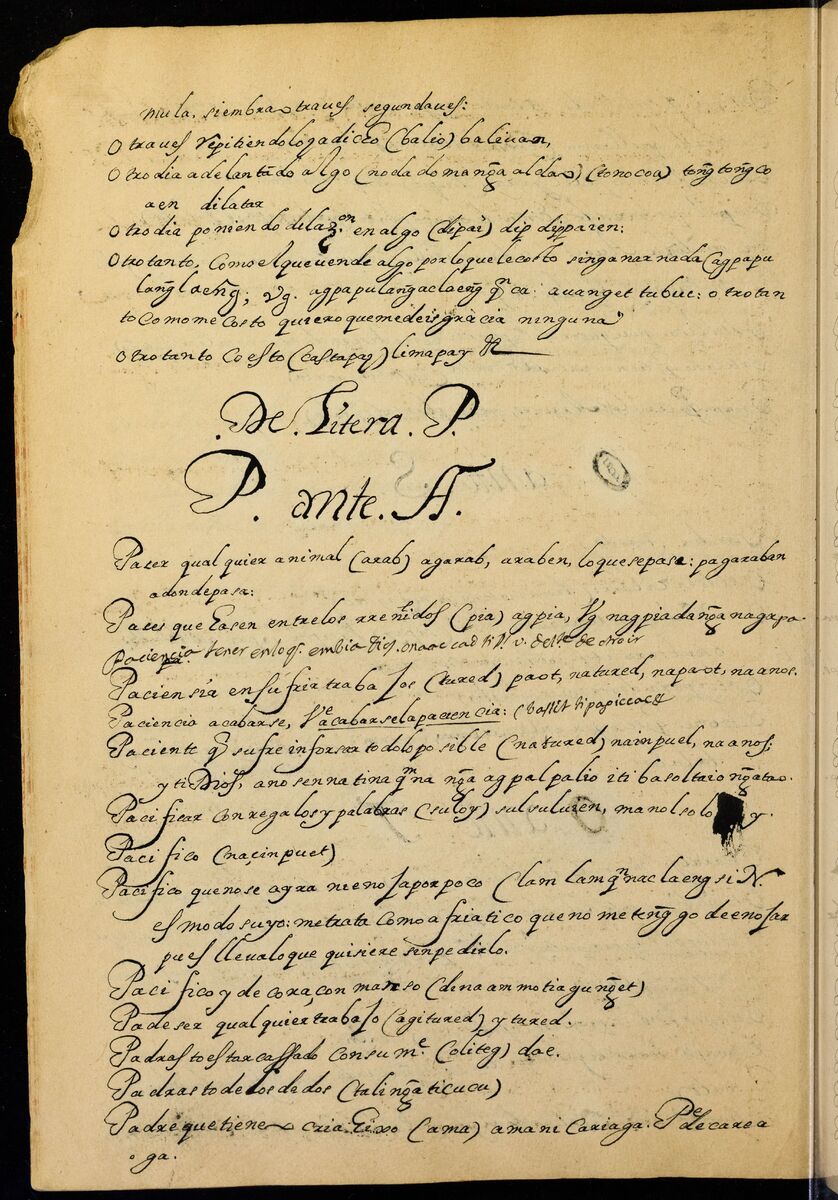 mula. siembra otraues segundaues:
Otraues rrepitiendolo gadiceo (balio) baliuan,
Otro dia adelantado algo (no da domanga aldao) (tonocoa) tong tong co
aen dilatar
Otro dia poniendo dilazon en algo (dipai) dip dippaien:
Otrotanto, como el que uende algo por lo que le costo sin ganar nada (agpapu
langlaeng; Vg. agpapulangaclaeng qm ca auanget tubuc: otrotan
to como me costo quiero que me deis gracia ninguna
Otro tanto Coesto (castapay) limapay
.De. Litera. P.
P. ante. A.
Pacer qual quier animal (arab) agarab, araben, lo que se pase: pagaraban
adonde pasa:
Paces que hasen entre los rreñidos (pia) agpia, Vg nagpiada nga nagapa
Paciencia. tener en lo q. embia Dios.
Paciensia en sufrir trabajos (tured) paot, natured, napaot, naanos.
Paciencia acabarse, Ve acabarsela paciencia: (bassit ti papicia
Paciente q sufre inforsar todo lo posible (natured) nainpuet, naanos;
y ti Dios, anosennatina qm na nga agpalpalio iti basoltaio ngatao.
Pacificar con regalos y palabras (suloy) sulsuluien, manolsolo y.
Pacifico (nacinpuet)
Pacifico que no se ayra ni enoja por poco (lam lam qm nac laeng si N.
es modo suyo: metrata como a friatico que no me tenggo de enojar
pues lleua lo que quisiere sin pedirlo.
Pacifico y de coraçon manso (dinaammotiagunget)
Padeser qual quier trabajo (agitured) y tured.
Padrasto estar cassado con su me. (oliteg) dae.
Padrasto de los dedos (talinga ti cucu)
Padre que tiene cria hixo (ama) amani Cariaga. Pe de carea
ga.